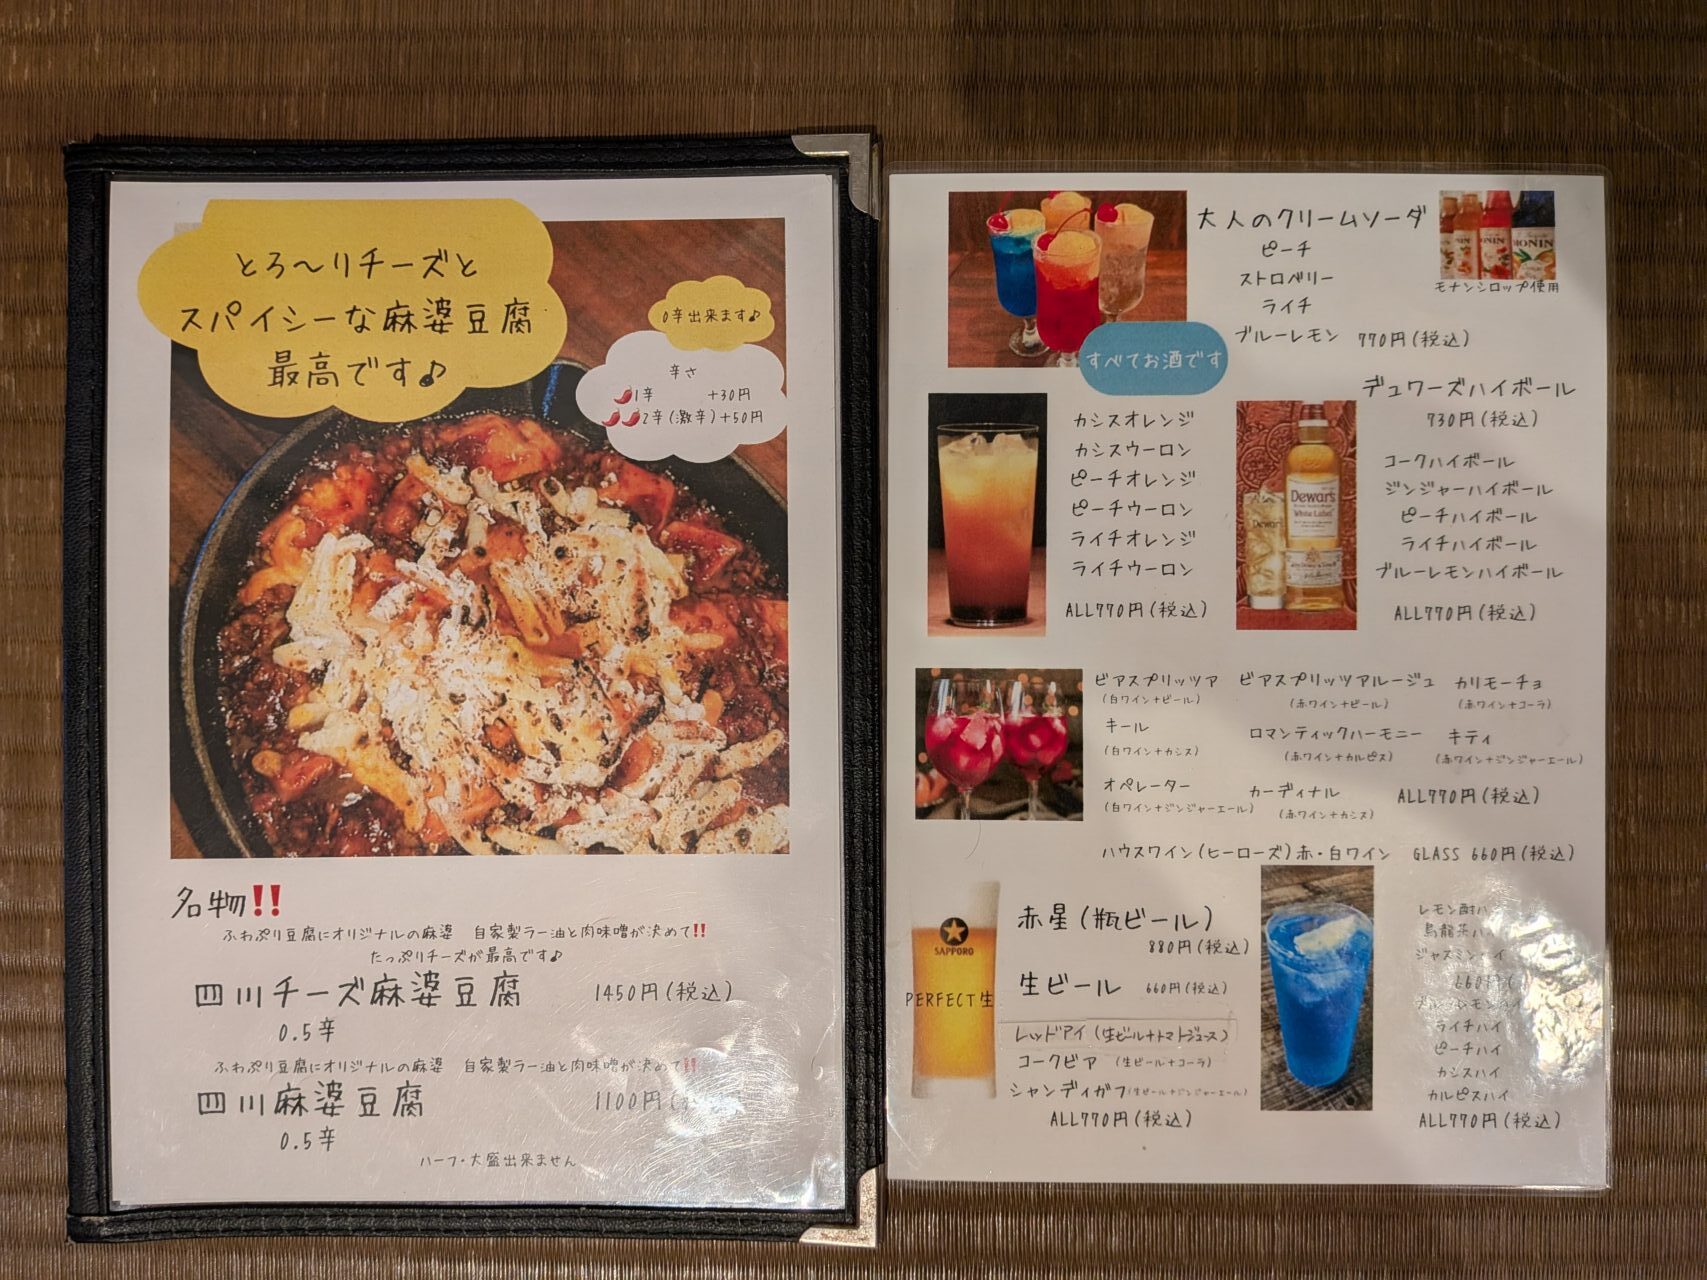 とろ〜りチーズと
スパイシーな麻婆豆腐
最高です♪
0辛出来ます♪
辛さ
🌶1辛 +30円
🌶🌶2辛(激辛)+50円
名物‼
ふわぷり豆腐にオリジナルの麻婆 自家製ラー油と肉味噌が決めて‼
たっぷりチーズが最高です♪
四川チーズ麻婆豆腐 1450円(税込)
0.5辛
ふわぷり豆腐にオリジナルの麻婆 自家製ラー油と肉味噌が決めて‼
四川麻婆豆腐 1100円
0.5辛
ハーフ・大盛出来ません
大人のクリームソーダ
ピーチ
ストロベリー
ライチ
ブルーレモン 770円(税込)
MONIN
モナンシロップ使用
すべてお酒です
カシスオレンジ
カシスウーロン
ピーチオレンジ
ピーチウーロン
ライチオレンジ
ライチウーロン
ALL770円(税込)
デュワーズハイボール
730円(税込)
Dewar's
White Label
コークハイボール
ジンジャーハイボール
ピーチハイボール
ライチハイボール
ブルーレモンハイボール
ALL770円(税込)
ビアスプリッツア ビアスプリッツアルージュ カリモーチョ
(白ワイン+ビール) (赤ワイン+ビール) (赤ワイン+コーラ)
キール ロマンティックハーモニー キティ
(白ワイン+カシス) (赤ワイン+カルピス) (赤ワイン+ジンジャーエール)
オペレーター カーディナル ALL770円(税込)
(白ワイン+ジンジャーエール) (赤ワイン+カシス)
ハウスワイン(ヒーローズ)赤・白ワイン GLASS 660円(税込)
SAPPORO
PERFECT生
赤星(瓶ビール)
880円(税込)
生ビール 660円(税込)
レッドアイ(生ビール+トマトジュース)
コークビア (生ビール+コーラ)
シャンディガフ(生ビール+ジンジャーエール)
ALL770円(税込)
レモン酎ハイ
烏龍茶ハイ
ジャスミンハイ
660円
ブルーレモンハイ
ライチハイ
ピーチハイ
カシスハイ
カルピスハイ
ALL770円(税込)